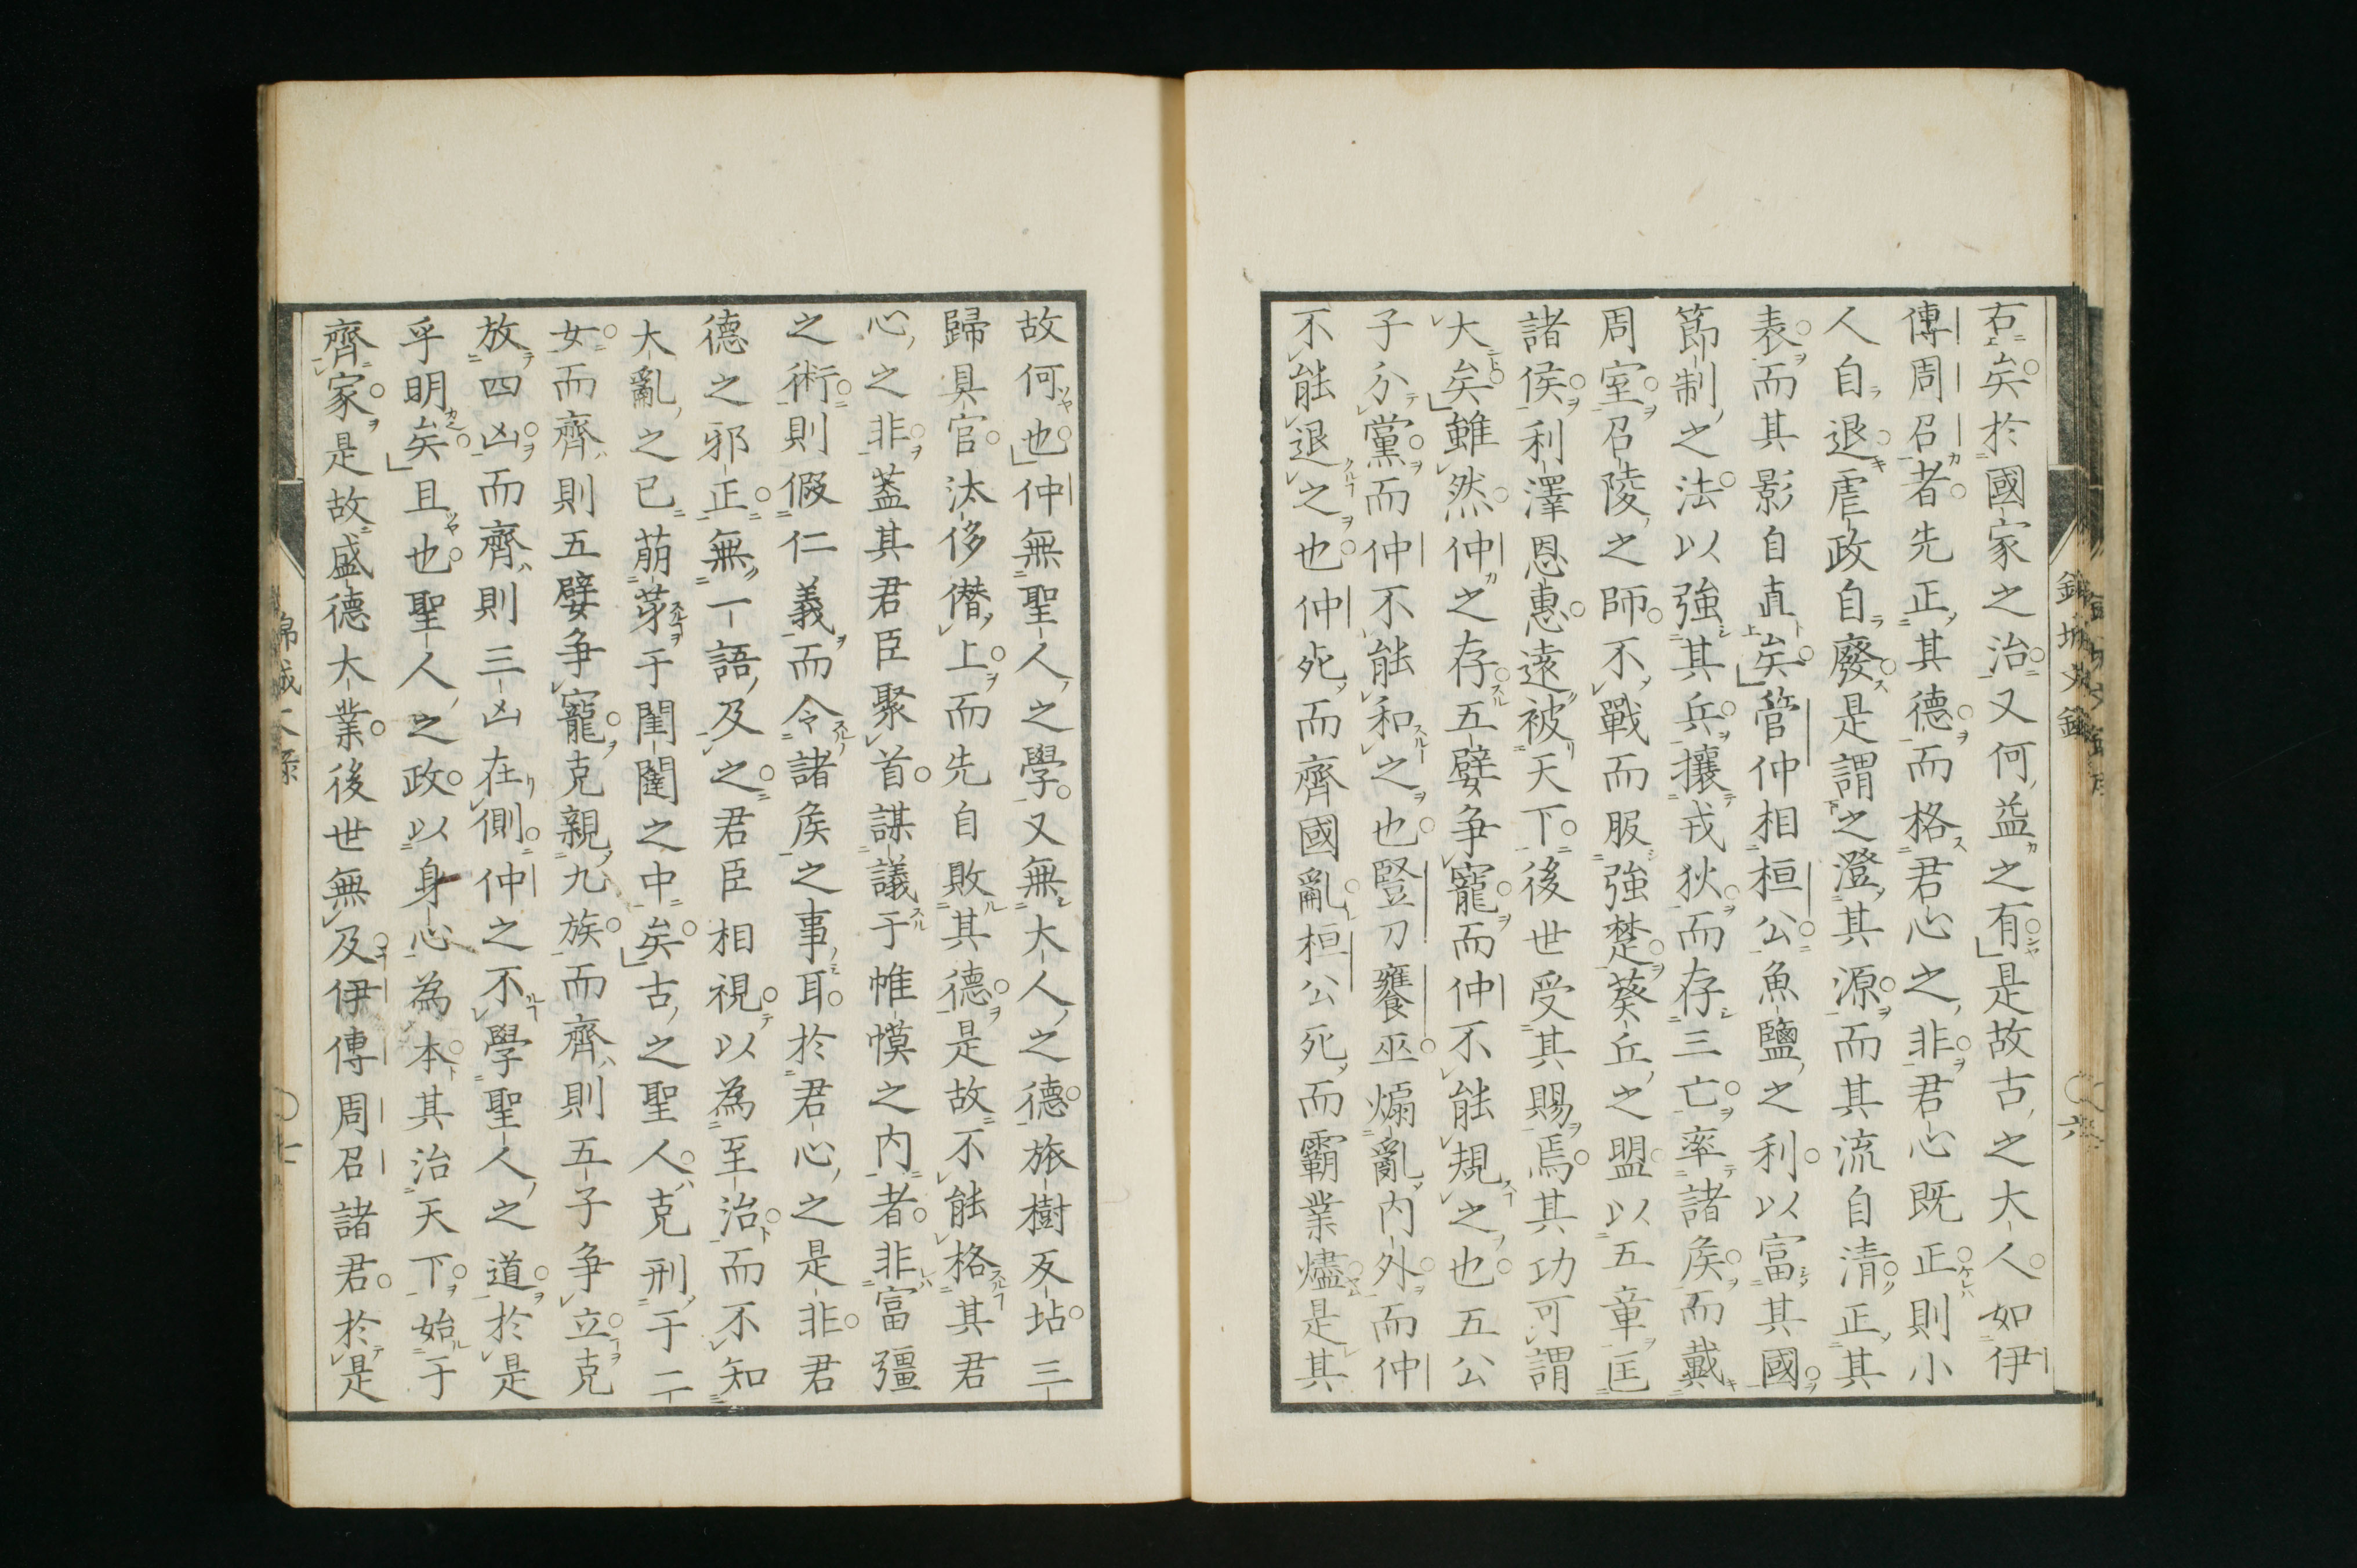 右矣於國家之治又何益之有是故古之大人如伊
傳周召者先正其德而格君心之非君心既正則小
人自退虐政自廢是謂之澄其源而其流自清正其
表而其影自直矣管仲相桓公魚鹽之利以富其國
節制之法以強其兵攘戎狄而存三亡率諸侯而戴
周室召陵之師不戰而服強楚葵丘之盟以五章匡
諸侯利澤恩惠遠被天下後世受其賜焉其功可謂
大矣雖然仲之存五嬖争寵而仲不能規之也五公
子分黨而仲不能和之也豎刀饔巫煽亂内外而仲
不能退之也仲死而齊國亂桓公死而霸業燼是其
故何也仲無聖人之學又無大人之德旅樹反坫三
歸具官汰侈僭上而先自敗其德是故不能格其君
心之非蓋其君臣聚首謀議于帷幙之内者非富彊
之術則假仁義而令諸侯之事耳於君心之是非君
德之邪正無一語及之君臣相視以為至治而不知
大亂之已萠芽于閨闥之中矣古之聖人克刑于二
女而齊則五嬖争寵克親九族而齊則五子争立克
放四凶而齊則三凶在側仲之不學聖人之道於是
乎明矣且也聖人之政以身心為本其治天下始于
齊家是故盛德大業後世無及伊傳周召諸君於是